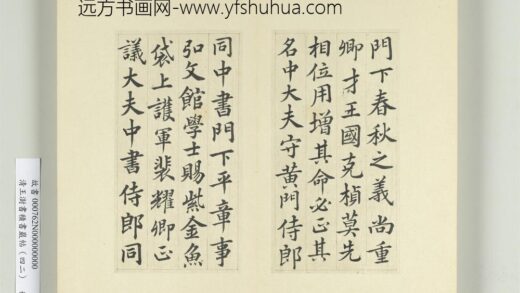 远方书画网-www.yfshuhua.com
門下春秋之義尚重
卿才王國克楨莫先
相位用增其命必正其
名中大夫守黃門侍郎
同中書門下平章事
弘文館學士賜紫金魚
袋上護軍裴耀卿正
議大夫中書侍郎同
故書 000762N000000000
清王澍書積書巖帖(四二)